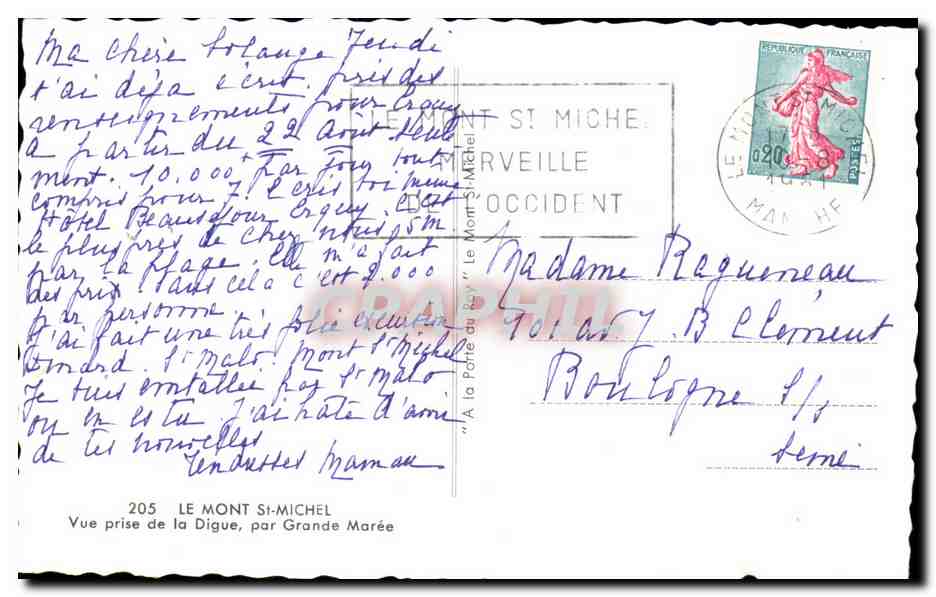 Ma chère Solange Jeudi
t'ai déjà écrit. pris des
renseignements pour Erquy
à partir du 22 Août seul
ment. 10.000 + par jour tout
compris pour 7. écris toi même
Hôtel Beauséjour Erquy. c'est
le plus près de chez nous 5m
par la plage. Elle m'a fait
des prix sans cela c'est 2.000
par personne.
J'ai fait une très jolie excursion
Dinard. St Malo. Mont St Michel
Je suis emballée par St Malo
ou en es tu J'ai hâte d'avoir
de tes nouvelles
Tendresses Maman
205 LE MONT St-MICHEL
Vue prise de la Digue, par Grande Marée
"A la Porte du Roy" Le Mont St-Michel
LE MONT St MICHEL
MERVEILLE
DE L'OCCIDENT
REPUBLIQUE FRANÇAISE
0,20
POSTES
LE MONT ST MICHEL
17
-8
MANCHE
Madame Ragueneau
J. B Clément
Boulogne s/s
Seine
CPAPHIL